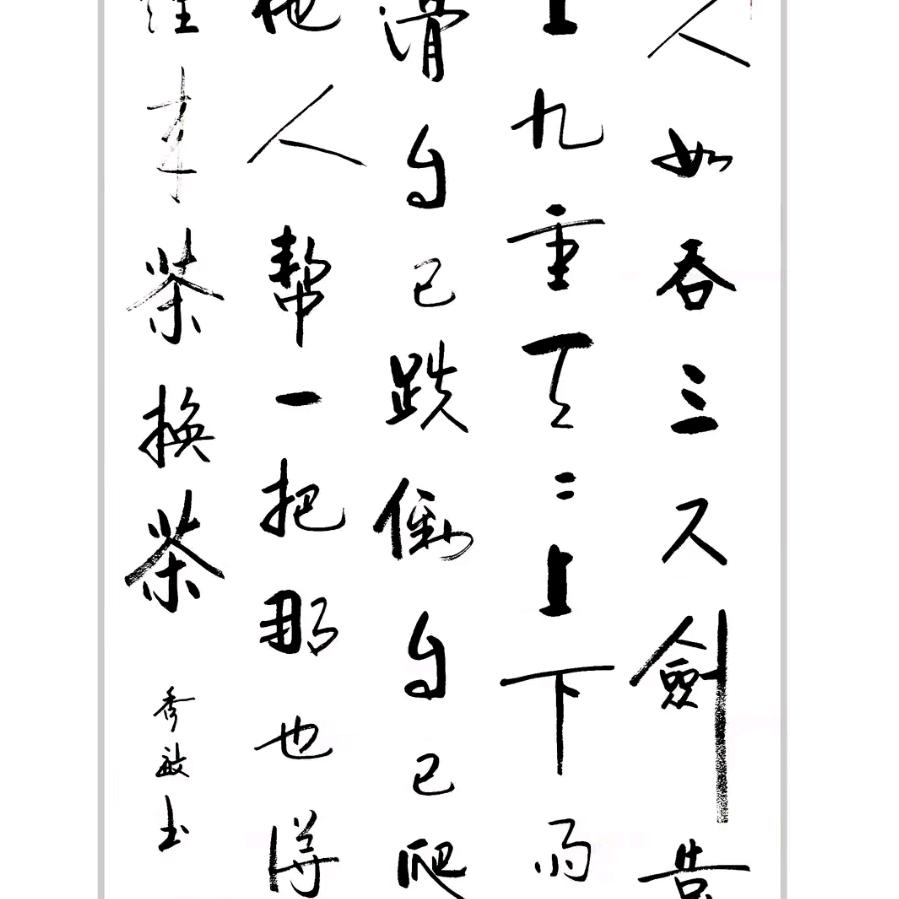 人如吞三尺劍
上九重天〻上下雨
滑自己跌倒自己爬
他人幫一把那也得
来茶换茶
秀敏书